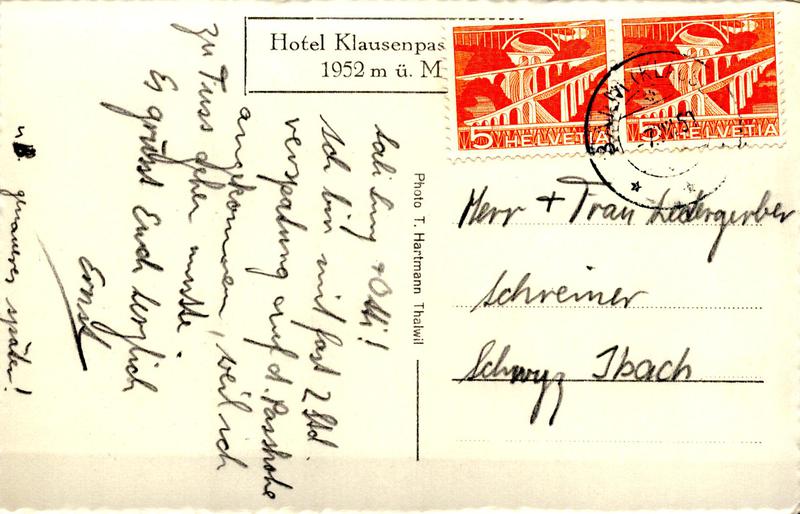 Hotel Klausenpas
1952 m ü. M
5 HELVETIA
5 HELVETIA
Otti!
Ich bin mit fast 2 Std.
verspätung auf d. Passhöhe
angekommen, weil ich
zu Fuss gehen musste.
Es grüsst Euch herzlich
Ernst
genaueres später!
Photo T. Hartmann Thalwil
Herr + Frau Ledergerber
Schreiner
Schwyz Ibach